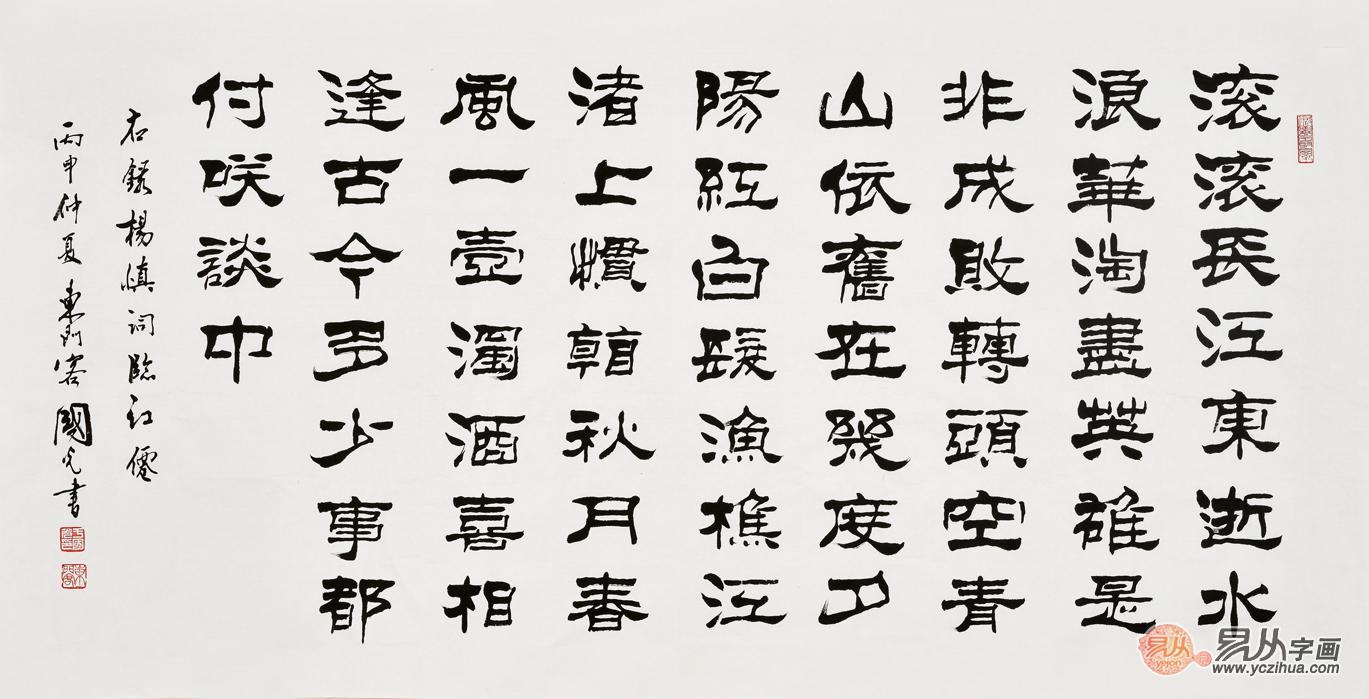 滚滚長江東逝水
浪華淘盡英雄是
非成敗轉頭空青
山依舊在幾度夕
陽紅白髮漁樵江
渚上慣看秋月春
風一壺濁酒喜相
逢古今多少事都
付咲談中
右録楊慎詞臨江僊
丙申仲夏東門客國書
易从
yejon
易从字画
www.yczihua.com